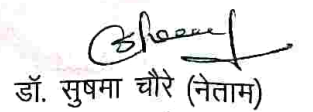 डॉ. सुषमा चौरे (नेताम)